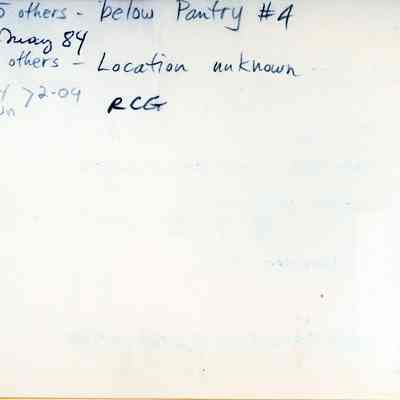 5 others - below Pantry #4
May 84
others - Location unknown
72-04
RCG